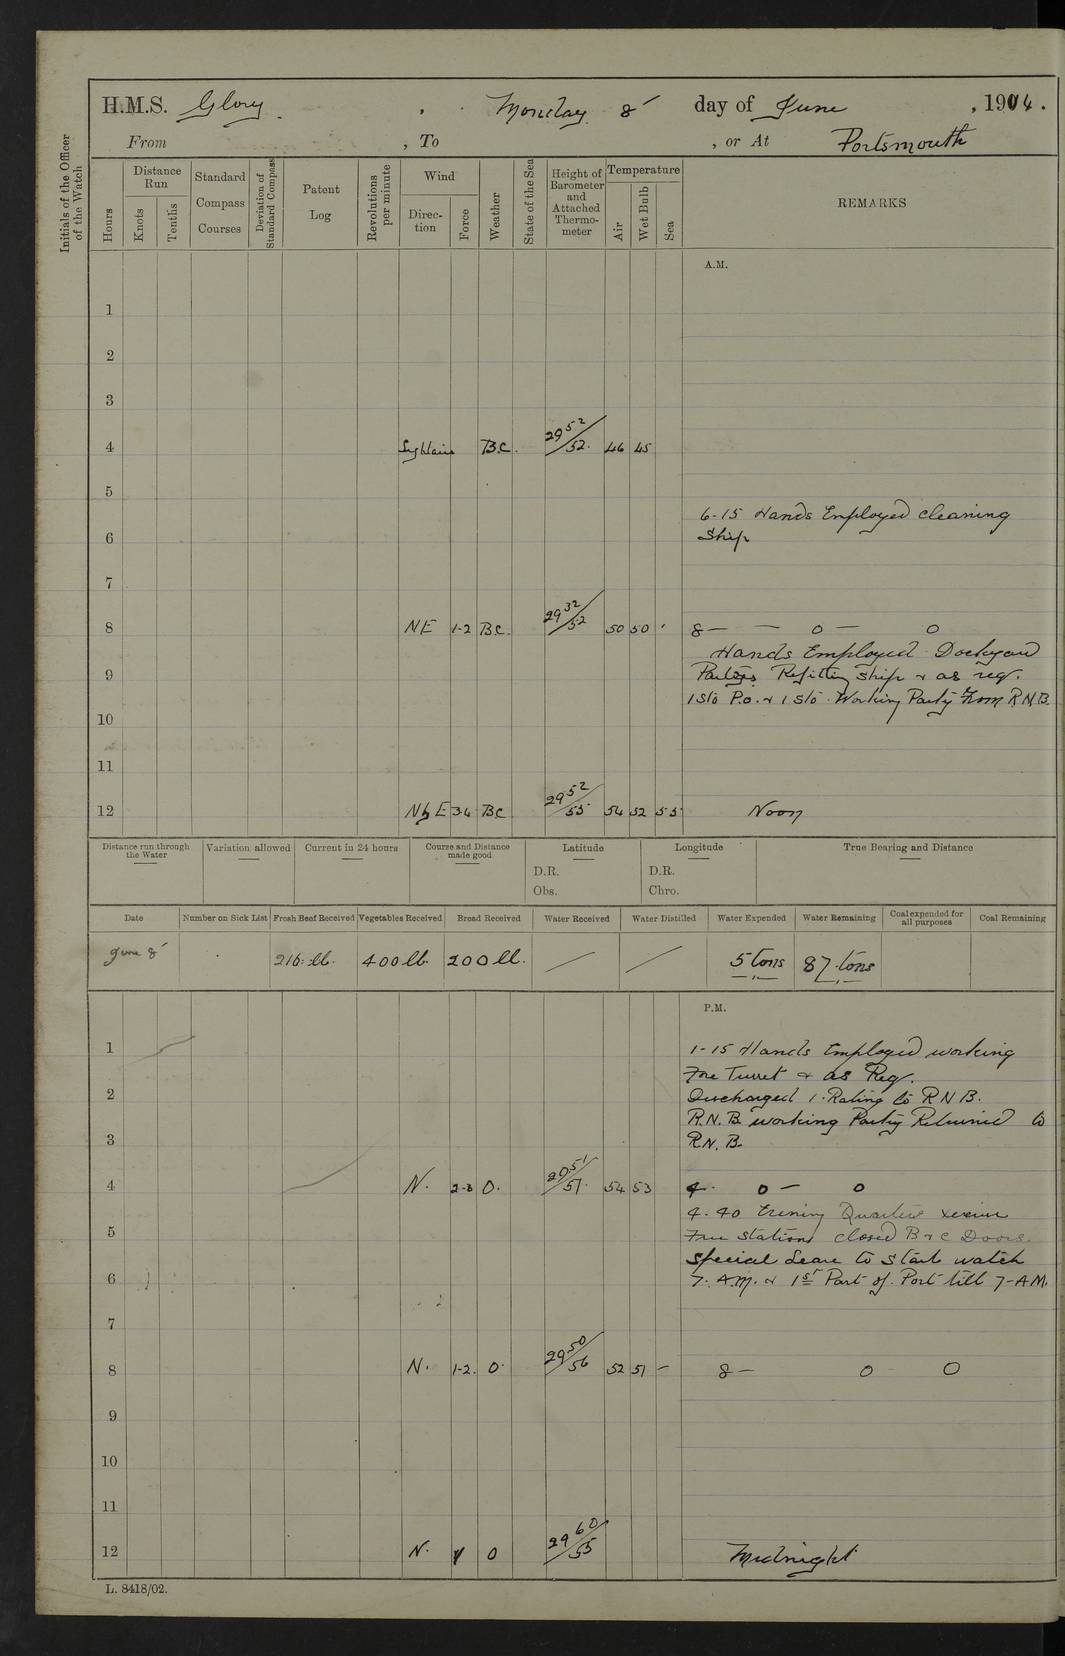 H.M.S. Glory. , Monday 8 day of June , 1914.
From , To , or At Portsmouth
Initials of the Officer of the Watch
Hours
Distance Run
Knots
Tenths
Standard Compass Courses
Deviation of Standard Compass
Patent Log
Revolutions per minute
Wind
Direc-tion
Force
Weather
State of the Sea
Height of Barometer and Attached Thermo-meter
Temperature
Air
Wet Bulb
Sea
REMARKS
A.M.
1
2
3
4 B.C. 29 52/52 46 45
5
6-15 Hands Employed cleaning
6 Ship
7
8 NE 1-2 B.C. 29 32/52 50 50 8 — — o — o
Hands Employed Dockyard
9 Parties Refitting ship & as req.
1 Sto P.O. & 1 Sto Working Party From R.N.B.
10
11
12 NbE 34 BC 29 52/55 54 52 55 Noon
Distance run through the Water
Variation allowed
Current in 24 hours
Course and Distance made good
Latitude
D.R.
Obs.
Longitude
D.R.
Chro.
True Bearing and Distance
Date Number on Sick List Fresh Beef Received Vegetables Received Bread Received Water Received Water Distilled Water Expended Water Remaining Coal expended for all purposes Coal Remaining
June 8 216 lb. 400 lb. 200 lb. 5 tons 87 tons
P.M.
1 1-15 Hands Employed working
Fore Turret & as Req.
2 Discharged 1 Rating to R N B.
R.N.B. working Party Returned to
3 R.N.B.
4 N. 2-3 O. 29.51/57 54 53 4. o — o
4.40 Evening Quarters
5 Fire Stations closed B & C Doors.
Special Leave to Starb watch
6 7. A.M. & 1st Part of Port till 7-AM.
7
8 N. 1-2. O. 29 50/56 52 51 — 8 — o O
9
10
11
12 N. O 29 60/55 Midnight
L. 8418/02.